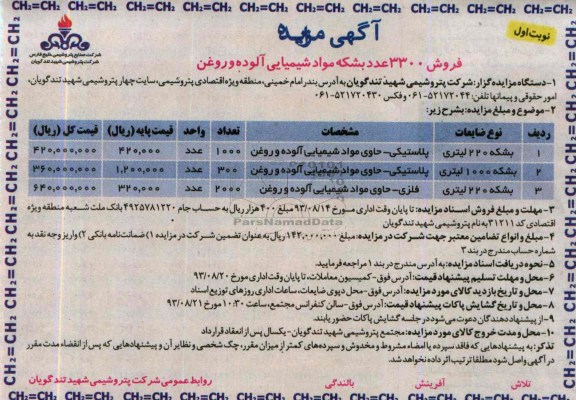 نوبت اول
آگهی مزایده
شرکت صنایع پتروشیمی خلیج فارس
شرکت پتروشیمی شهید تندگویان
فروش ۳۳۰۰ عدد بشکه مواد شیمیایی آلوده و روغن
۱- دستگاه مزایده گزار: شرکت پتروشیمی شهید تندگویان به آدرس بندر امام خمینی، منطقه ویژه اقتصادی پتروشیمی، سایت چهار پتروشیمی شهید تندگویان،
امور حقوقی و پیمانها تلفن: ۵۲۱۷۲۰۴۴-۰۶۱ و فکس ۵۲۱۷۲۰۴۳۰-۰۶۱
۲- موضوع و مبلغ مزایده: بشرح زیر:
ردیف نوع ضایعات مشخصات تعداد واحد قیمت پایه (ریال) قیمت کل (ریال)
۱ بشکه ۲۲۰ لیتری پلاستیکی- حاوی مواد شیمیایی آلوده و روغن ۱۰۰۰ عدد ۴۲۰,۰۰۰ ۴۲۰,۰۰۰,۰۰۰
۲ بشکه ۱۰۰۰ لیتری پلاستیکی- حاوی مواد شیمیایی آلوده و روغن ۳۰۰ عدد ۱,۲۰۰,۰۰۰ ۳۶۰,۰۰۰,۰۰۰
۳ بشکه ۲۲۰ لیتری فلزی- حاوی مواد شیمیایی آلوده و روغن ۲۰۰۰ عدد ۳۲۰,۰۰۰ ۶۴۰,۰۰۰,۰۰۰
ParsNamadData
۳- مهلت و مبلغ فروش اسناد مزایده: تا پایان وقت اداری مورخ ۹۳/۰۸/۱۴ مبلغ ۴۰۰ هزار ریال به حساب جام ۴۹۲۵۷۸۱۲۲۰ بانک ملت شعبه منطقه ویژه
اقتصادی کد ۳۱۲۱۱ به نام پتروشیمی شهید تندگویان
۴- مبلغ و انواع تضامین معتبر جهت شرکت در مزایده: مبلغ ۱۴۲,۰۰۰,۰۰۰ ریال به عنوان تضمین شرکت در مزایده ۱) ضمانت نامه بانکی ۲) واریز وجه نقد به
شماره حساب مندرج در بند ۳
۵- نحوه دریافت اسناد مزایده: به آدرس مندرج در بند ۱ مراجعه فرمایید.
۶- محل و مهلت تسلیم پیشنهاد قیمت: آدرس فوق- کمیسیون معاملات، تا پایان وقت اداری مورخ ۹۳/۰۸/۲۰
۷- محل و تاریخ بازدید کالای مورد مزایده: آدرس فوق- محل دپوی ضایعات، ساعات اداری روزهای توزیع اسناد
۸- محل و تاریخ گشایش پاکات پیشنهاد قیمت: آدرس فوق- سالن کنفرانس مجتمع، ساعت ۱۰:۳۰ مورخ ۹۳/۰۸/۲۱
۹- از پیشنهاددهندگان دعوت می شود در جلسه گشایش پاکات حضور یابند.
۱۰- محل و مدت خروج کالای مورد مزایده: مجتمع پتروشیمی شهید تندگویان- یکسال پس از انعقاد قرارداد
تذکر: به پیشنهادهایی که فاقد سپرده یا امضاء مشروط و مخدوش و سپرده های کمتر از میزان مقرر، چک شخصی و نظایر آن و پیشنهادهایی که پس از انقضاء مدت مقرر
در آگهی واصل شود مطلقا ترتیب اثر داده نخواهد شد.
تلاش آفرینش بالندگی روابط عمومی شرکت پتروشیمی شهید تندگویان